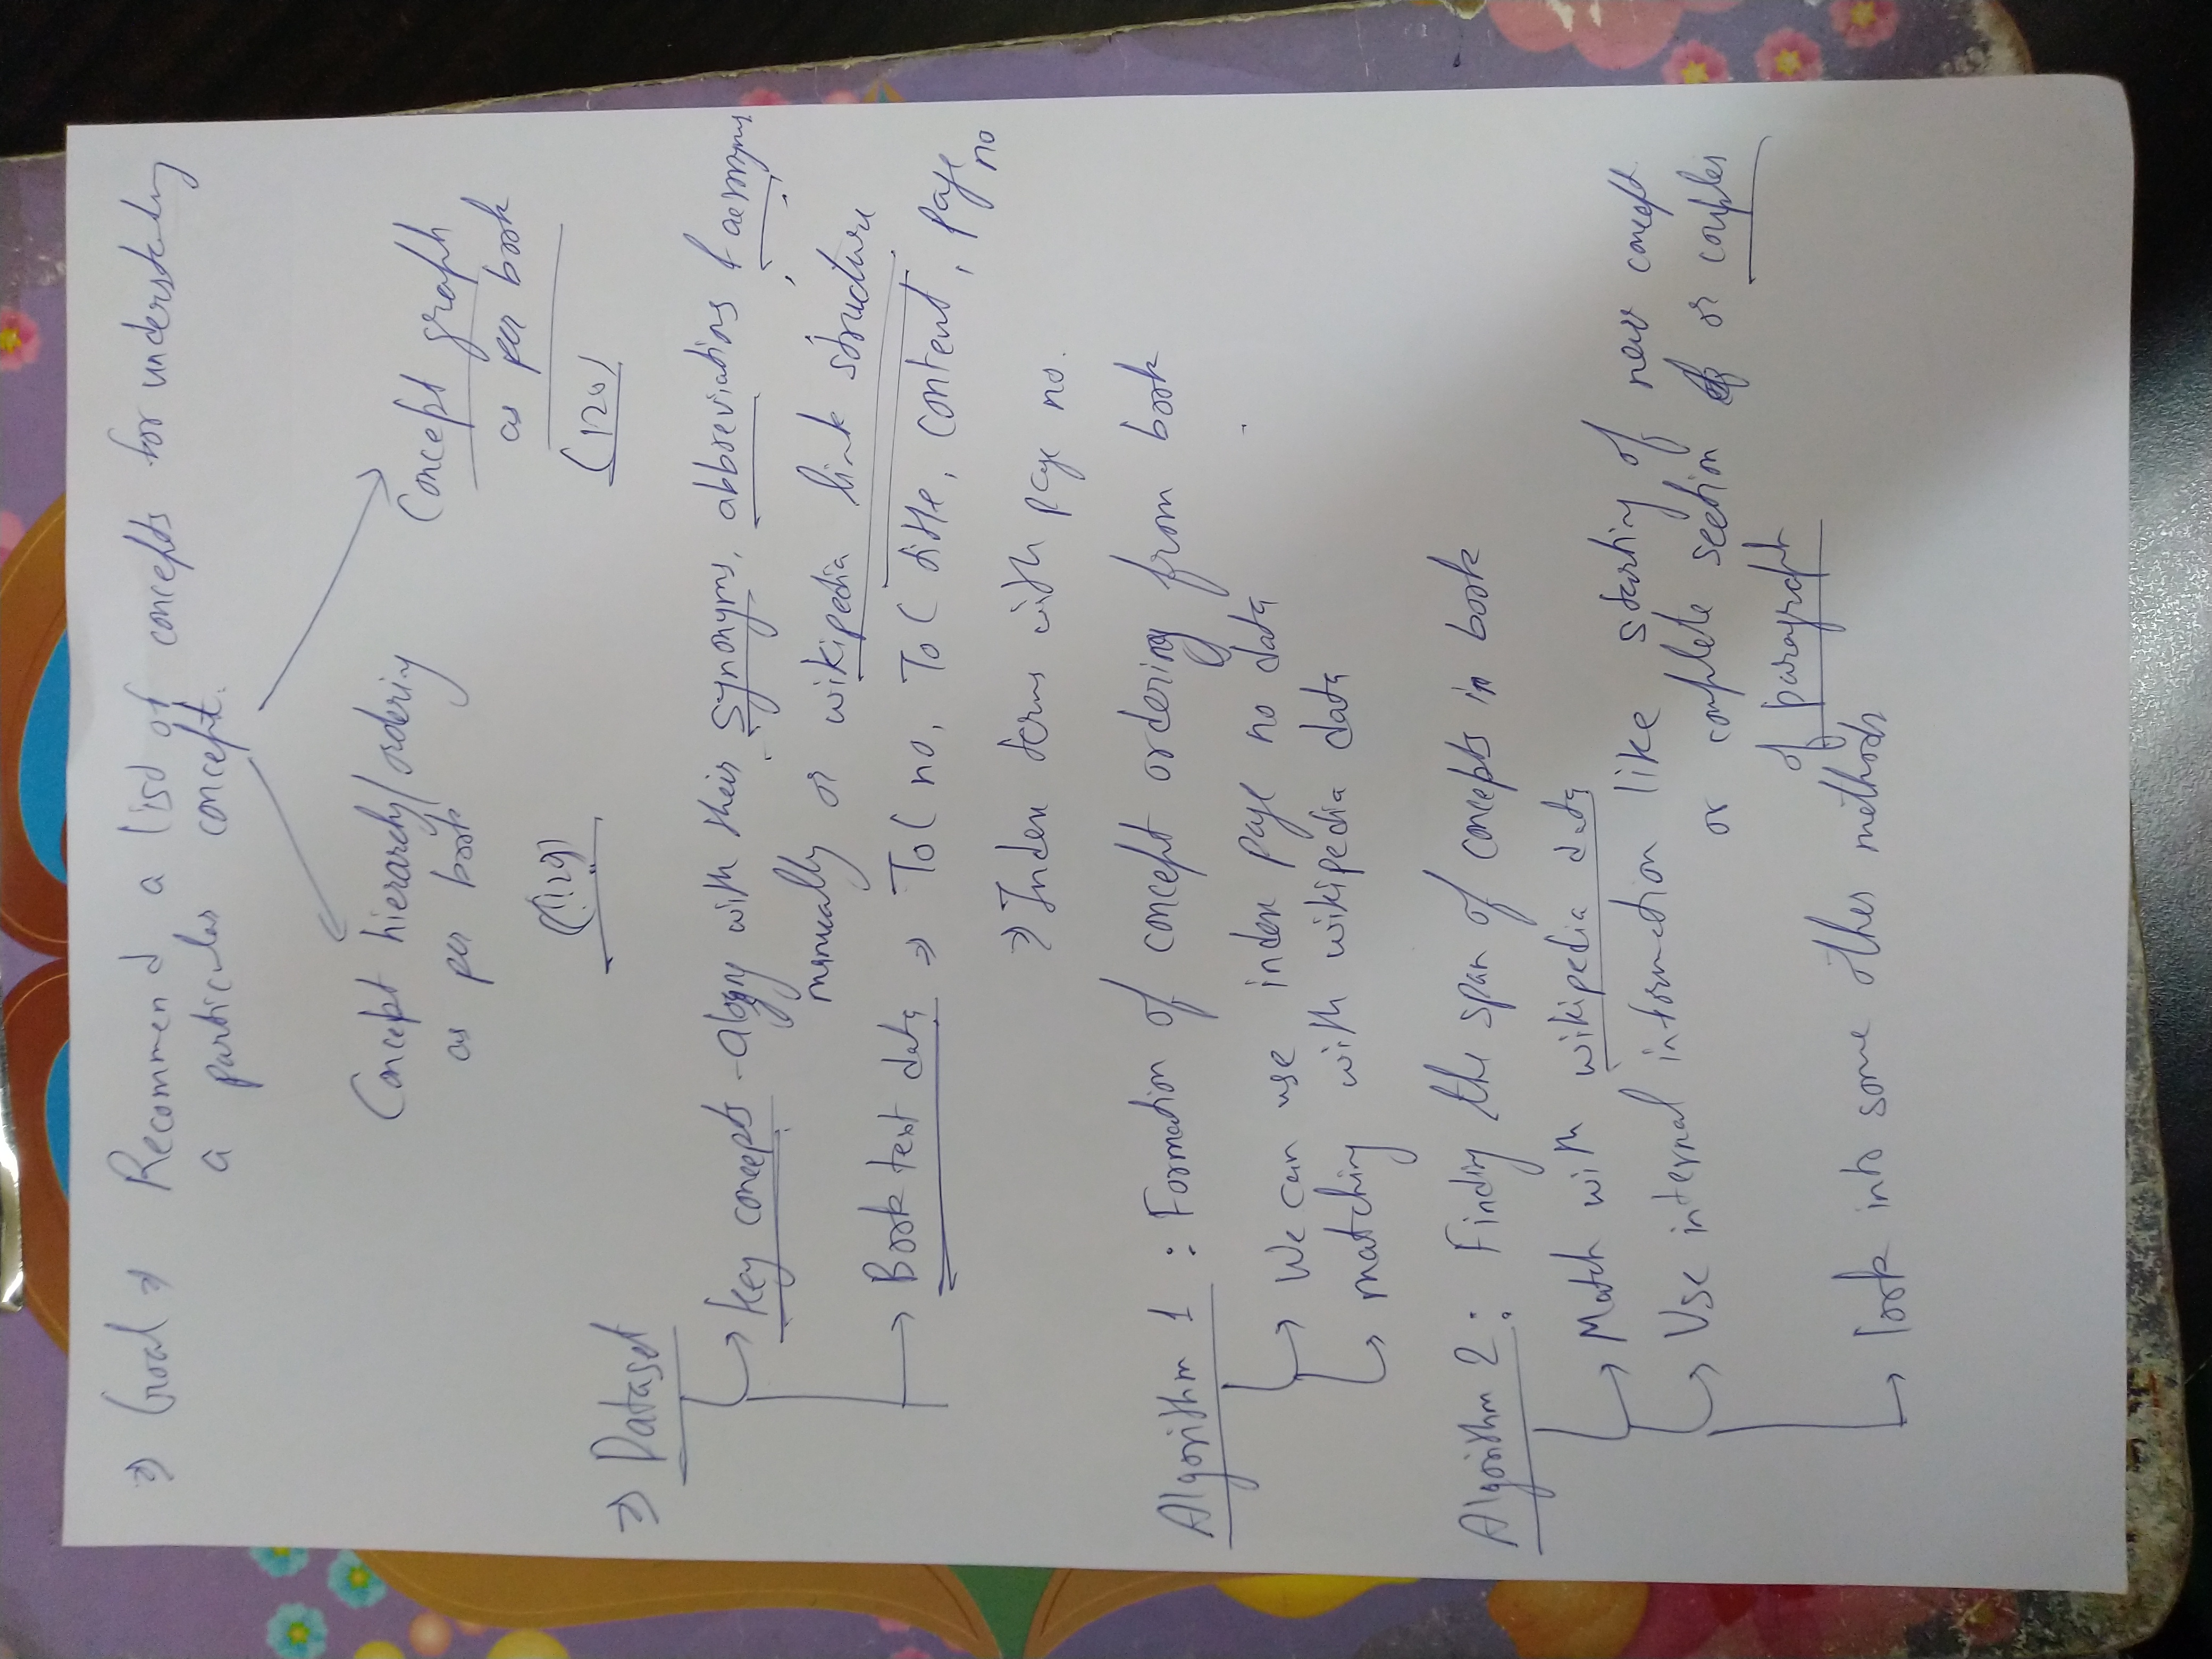 ⇒ Goal ⇒ Recommend a list of concepts for understanding
a particular concept.
Concept hierarchy/ordering
as per book
Concept graph
as per book
(120)
⇒ Dataset
→ Key concepts - along with their synonyms, abbreviations & acronyms
manually or wikipedia link structure
→ Book text data ⇒ ToC no, ToC title, content, page
no
⇒ Index terms with page no.
Algorithm 1 : Formation of concept ordering from book
→ We can use index page no data
→ matching with wikipedia data
Algorithm 2 : Finding the span of concepts in book
→ Match with wikipedia data
→ Use internal information like starting of new concept
or complete section or couples
of paragraph
→ look into some other methods